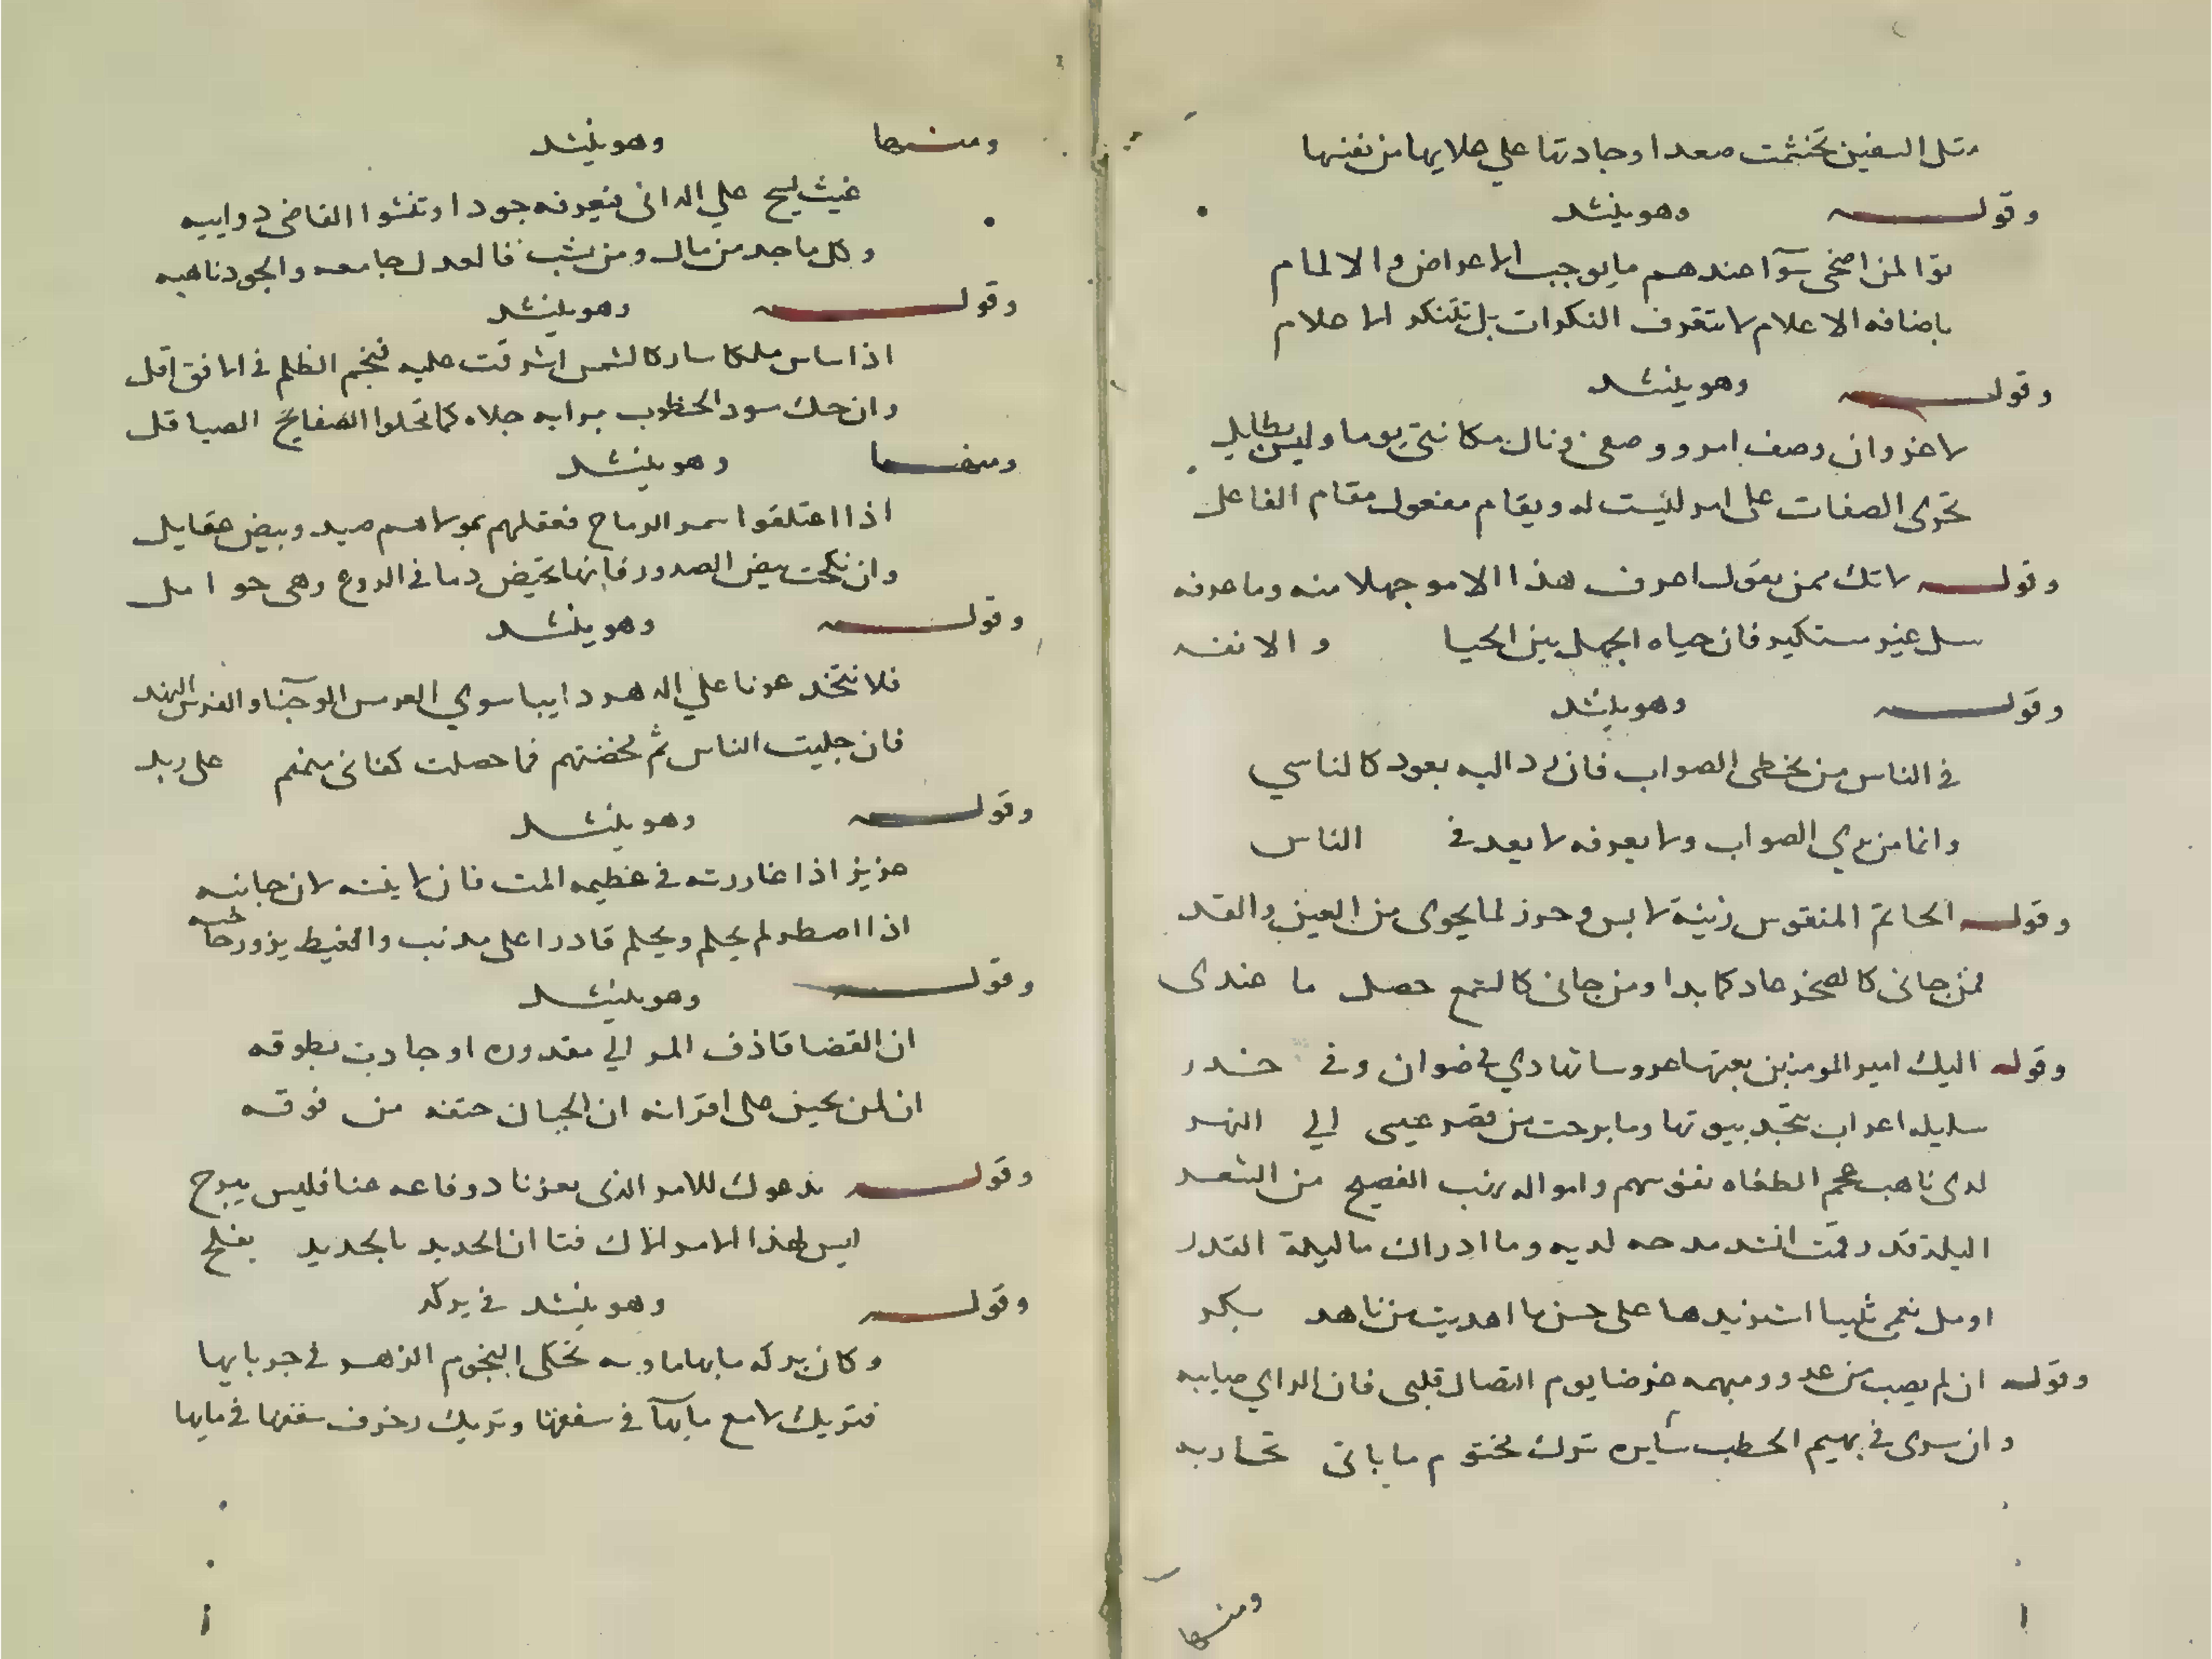 مثل السفين تجشمت صعدا وحادتها علي علايها من نفنها
وقولـه وهو ينشد
توا لمن اضحى سوآ عندهم ما يوجب الاعراض والالمام
باضافه الاعلام لا تتعرف النكرات بل تتنكر الاعلام
وقولـه وهو ينشد
لا غزو ان وصف امرو وصفى ونال مكانتى يوما وليس بطايل
تجرى الصفات على امر ليست له ويقام مفعول مقام الفاعل
وقولـه لا تك ممن يقول اعرف هذا الامر جهلا منه وما عرفه
سل غير مستكبر فان حياه الجهل بين الحيا والانفه
وقولـه وهو ينشد
في الناس من يخطى الصواب فان رد اليه يعود كالناسي
وانما من يري الصواب ولا يعرفه لا يعد في الناس
وقولـه الخاتم المنقوس زينة لابس وحرز لما يحوى من العين والنقد
فمن جانى كالصخر عاد كما بدا ومن جانى كالشمع حصل ما عندى
وقوله اليك امير المومنين بعثتها عروسا تهادي في ضوان وفي خدر
سليله اعراب بنجد بيوتها وما برحت من قصر عيسى الي النهر
لدى ناهب عجم الطغاه نفوسهم وامواله نهب الفصيح من الشعر
اليلة قدر قمت انشد مدحه لديه وما ادراك ما ليلة القدر
اومل نعمى ثيبا استزيدها على حسن ما اهديت من ناهد بكر
وقوله ان لم يصب من عدو ومبهمه غرضا يوم النضال قلبى فان الراي صايبه
وان سرى في بهيم الخطب سايره ترك مختوم ما ياتى تجاربه
ومنـها
ومنـها وهو ينشد
غيث يسح علي الدانى فيعرفه جودا وتغشوا القاضى دواييه
وكل ماجد من مال ومن نشب فالعدل جامعه والجود ناهبه
وقولـه وهو ينشد
اذا ساس ملكا سار كالشمس اشرقت عليه فنجم الظلم في الافق افل
وان حلت سود الخطوب برايه جلاه كما تجلوا الصفايح الصياقل
ومنهـا وهو ينشد
اذا اعتلقوا سمر الرماح فعقلهم بمولاهم صيد وبيض عقايل
وان نكحت بيض الصدور فانها تحيض دما في الروع وهى حوامل
وقولـه وهو ينشد
فلا تتخذ عونا علي الدهر دايبا سوي العرمس الوجنا والفرس النهد
فان جليت الناس ثم مخضتهم فما حصلت كفانى منهم على زبد
وقولـه وهو ينشد
عزيز اذا غادرته في عظيمه المت فان لاينته لان جانبه
اذا اضطر لم يحلم ويحلم قادرا على مذنب والغيظ يزور حاجبه
وقولـه وهو ينشد
ان القضا قاذف المر الي مقدوره او جاذب بطوقه
ان لمن يحين على اقرانه ان الجبان حتفه من فوقه
وقولـه ندعوك للامر الذى يعزنا دوفاعه عنا فليس يبرح
ليس لهذا الامر الاك فتا ان الحديد بالحديد يفلح
وقولـه وهو ينشد في بركه
وكان بركه مايها ماويه تحكى النجوم الزهر في جربايها
فتريك لامع مايها في سقفها وتريك زخرف سقفها في مايها